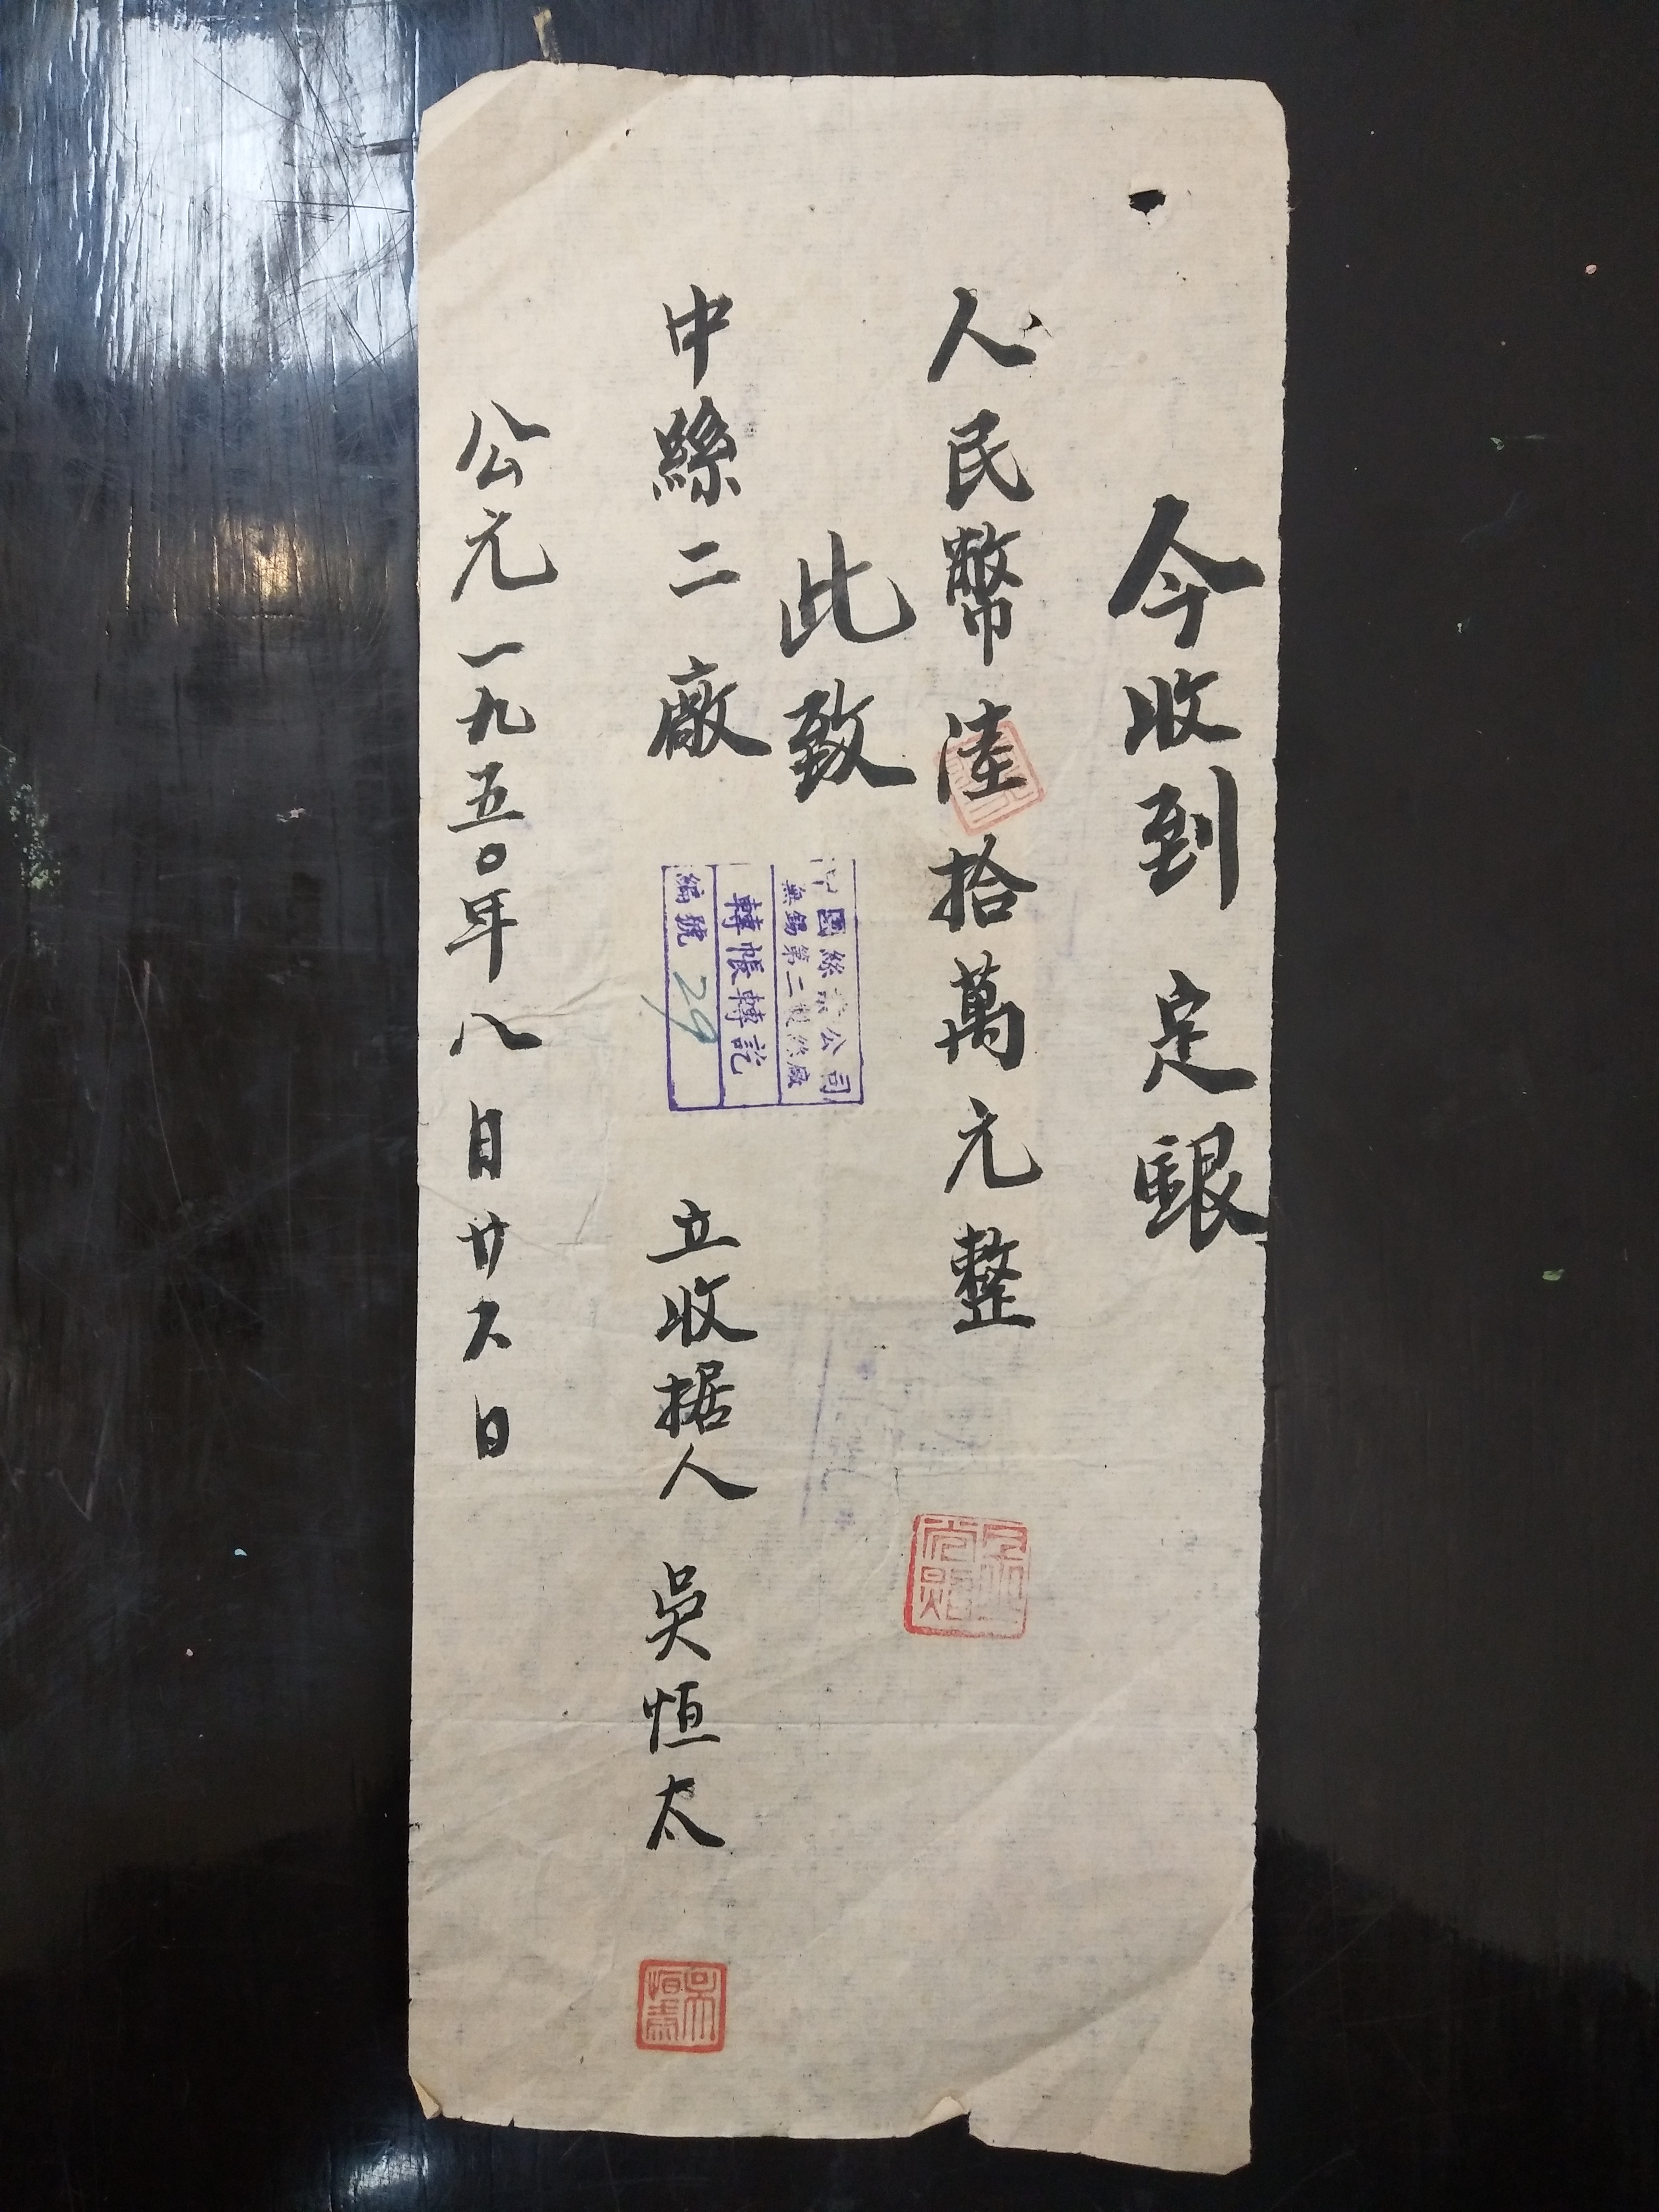 今收到 定銀
人民幣陸拾萬元整
此致
中絲二廠 立收据人 吳恒太
公元一九五〇年八月廿六日
中國絲業公司
無錫第二製絲廠
轉帳轉訖
編號 29
吳恒泰